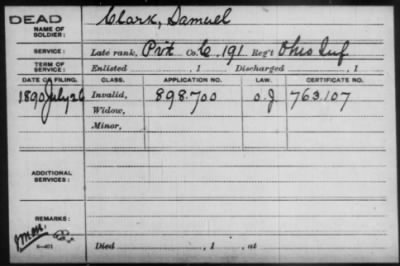 DEAD
NAME OF SOLDIER: Clark, Samuel
SERVICE: Late rank, Pvt Co. C, 191 Reg't Ohio Inf
TERM OF SERVICE: Enlisted , 1 Discharged , 1
DATE OF FILING. CLASS. APPLICATION NO. LAW. CERTIFICATE NO.
1890 July 26 Invalid, 898.700 763.107
Widow,
Minor,
ADDITIONAL SERVICES:
REMARKS:
6-401 Died , 1 , at